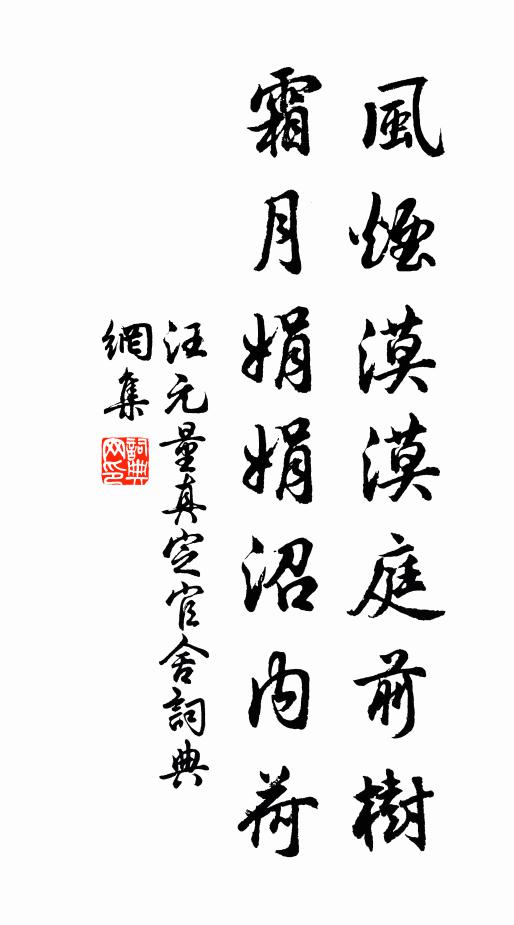 風煙漠漠庭前樹
霜月娟娟沼内荷
汪元量真定官舍詞典
網集
詞典網印